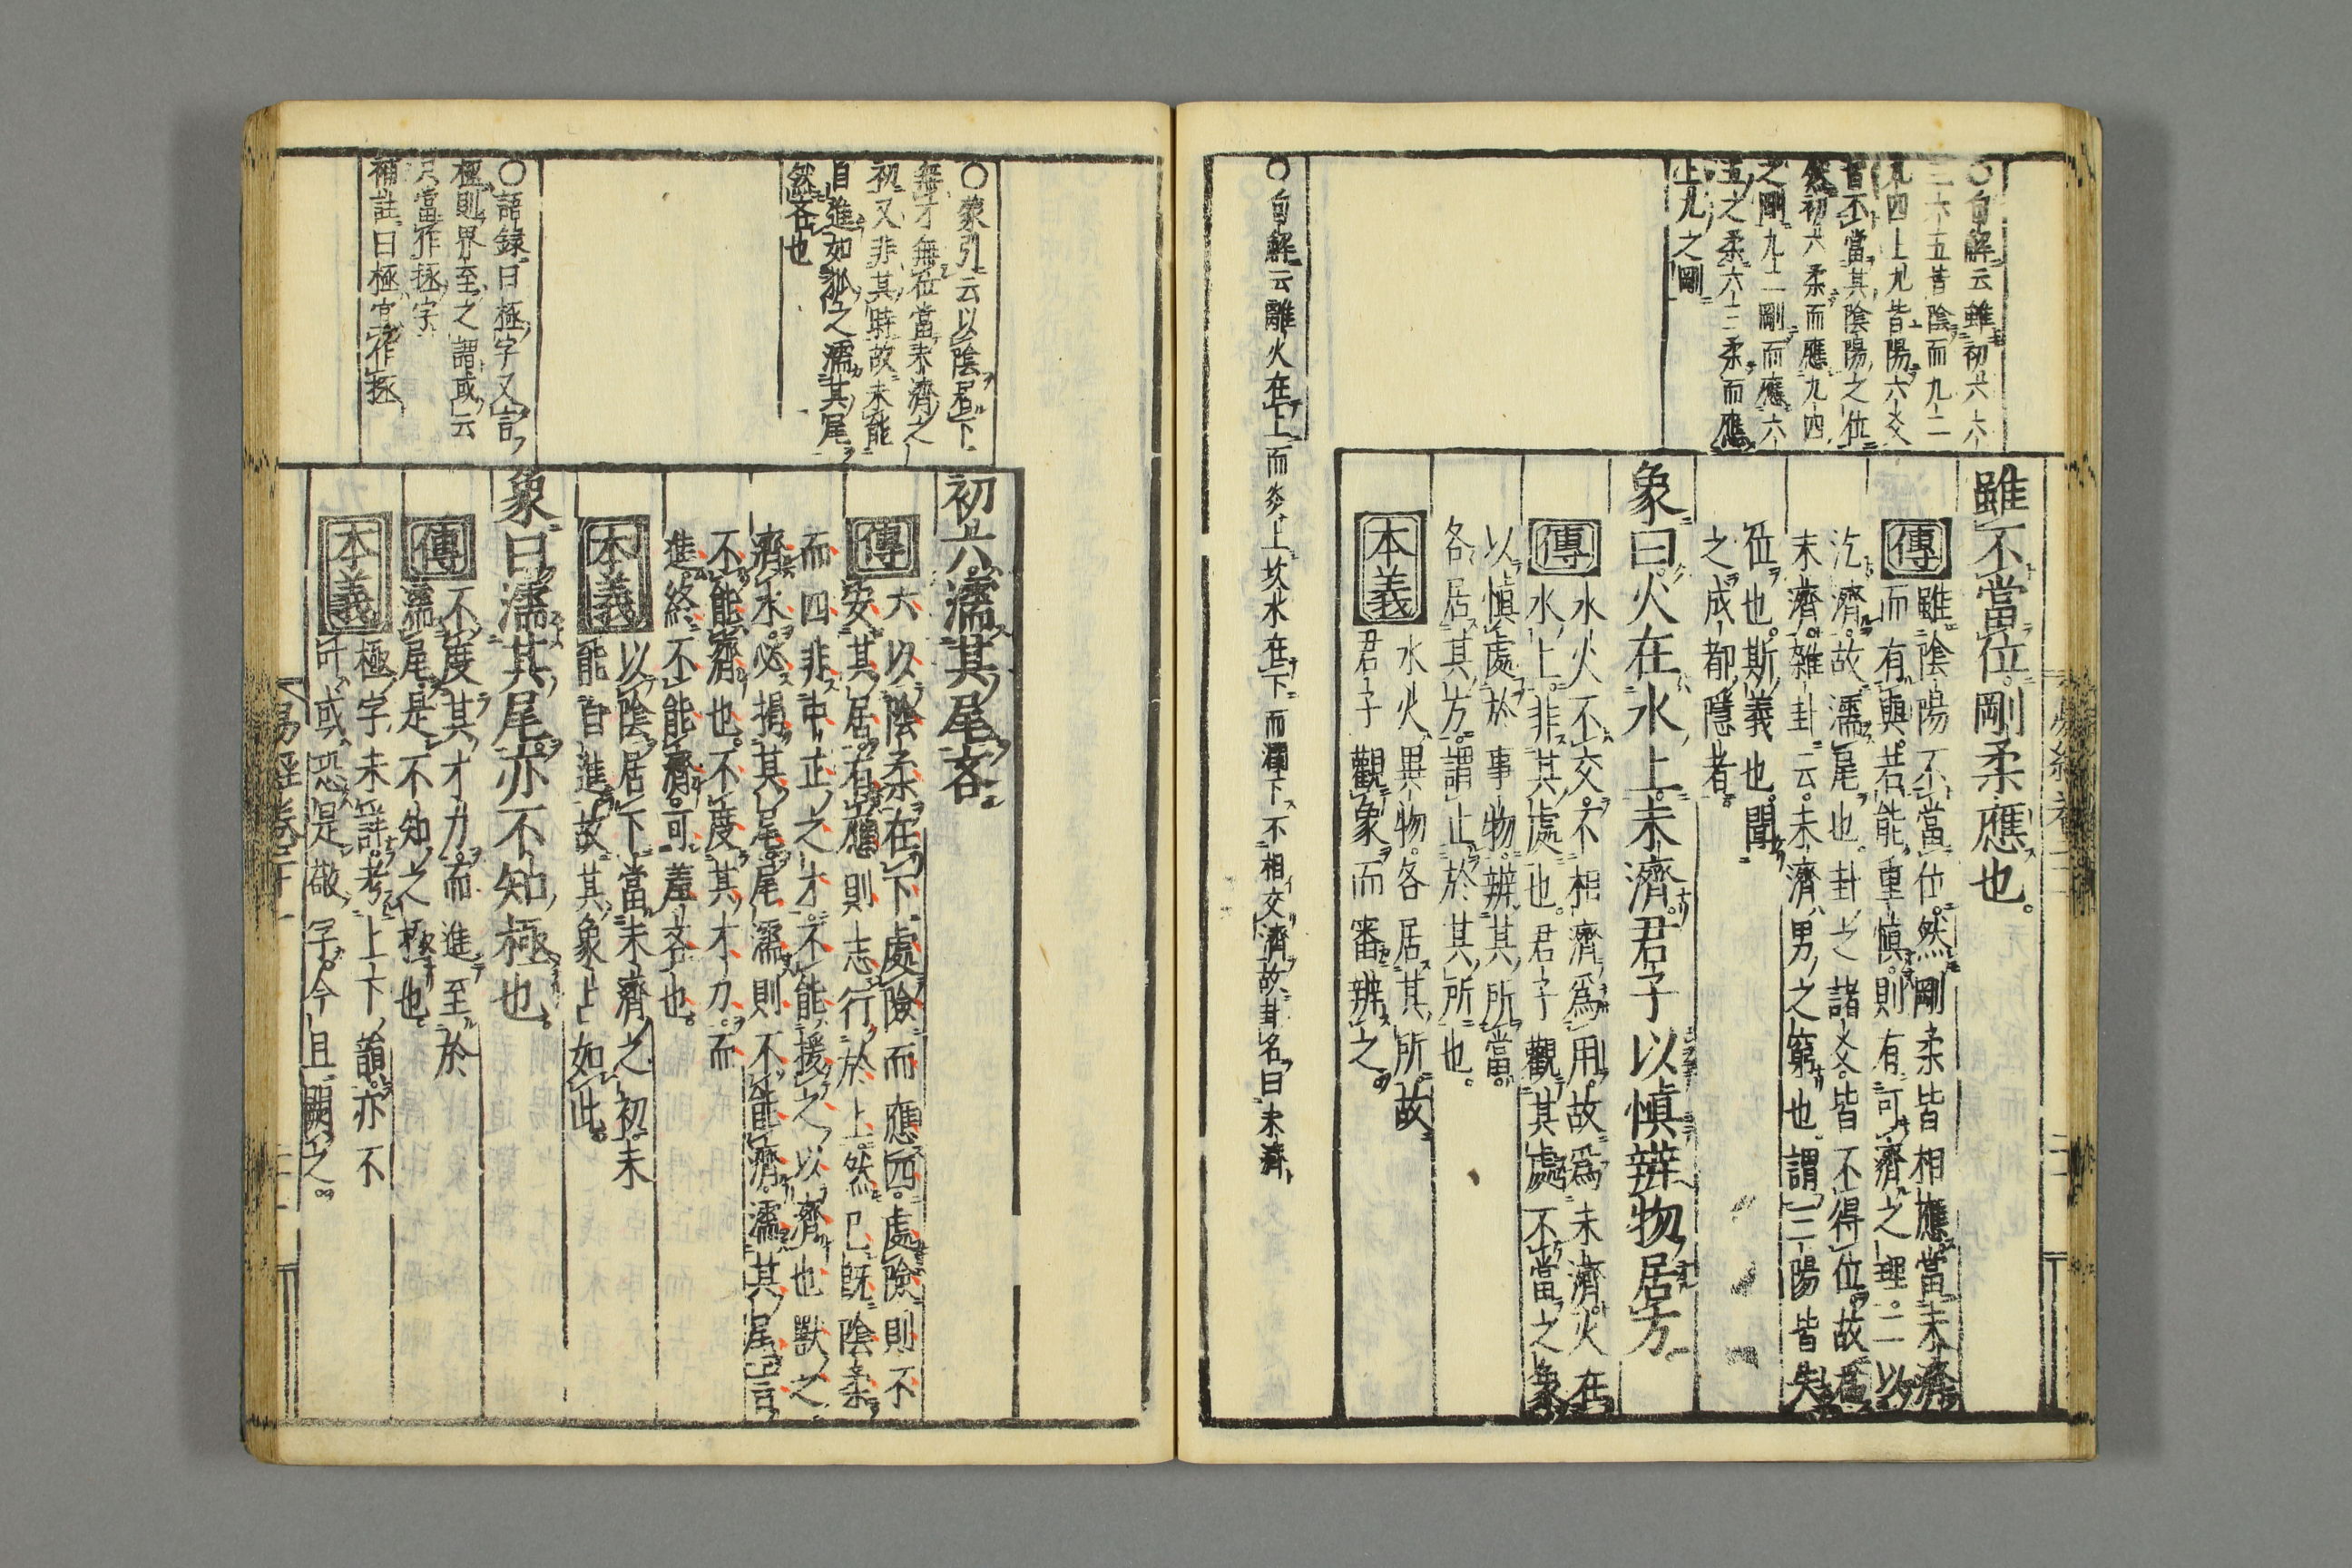 ○直解云雖初六六
三六五皆陰而九二
九四上九皆陽六爻
皆不當其陰陽之位
然初六柔而應九四
之剛九二剛而應六
五之柔六三柔而應
上九之剛
雖不當位剛柔應也
傳 雖陰陽不當位然剛柔皆相應當未濟
而有與若能重慎則有可濟之理二以
汔濟故濡尾也卦之諸爻皆不得位故爲
未濟雜卦云未濟男之窮也謂三陽皆失
位也斯義也聞
之成都隱者
象曰火在水上未濟君子以慎辨物居方
傳 水火不交不相濟爲用故爲未濟火在
水上非其處也君子觀其處不當之象
以慎處於事物辨其所當
各居其方謂止於其所也
本義 水火異物各居其所故
君子觀象而審辨之
○直解云離火在上而炎上坎水在下而潤下不相交濟故卦名曰未濟
○蒙引云以陰居下
無才無位當未濟之
初又非其時故未能
自進如狐之濡其尾
然吝也
○語録曰極字又言
極則界至之謂或云
只當作拯字
補註曰極宜作拯
初六濡其尾吝
傳 六以陰柔在下處險而應四處險則不
安其居有應則志行於上然已既陰柔
而四非中正之才不能援之以濟也獸之
濟水必揭其尾尾濡則不能濟濡其尾言
不能濟也不度其才力而
進終不能濟可羞吝也
本義 以陰居下當未濟之初未
能自進故其象占如此
象曰濡其尾亦不知極也
傳 不度其才力而進至於
濡尾是不知之極也
本義 極字未詳考上下韻亦不
叶或恐是敬字今且闕之
易經卷二十一